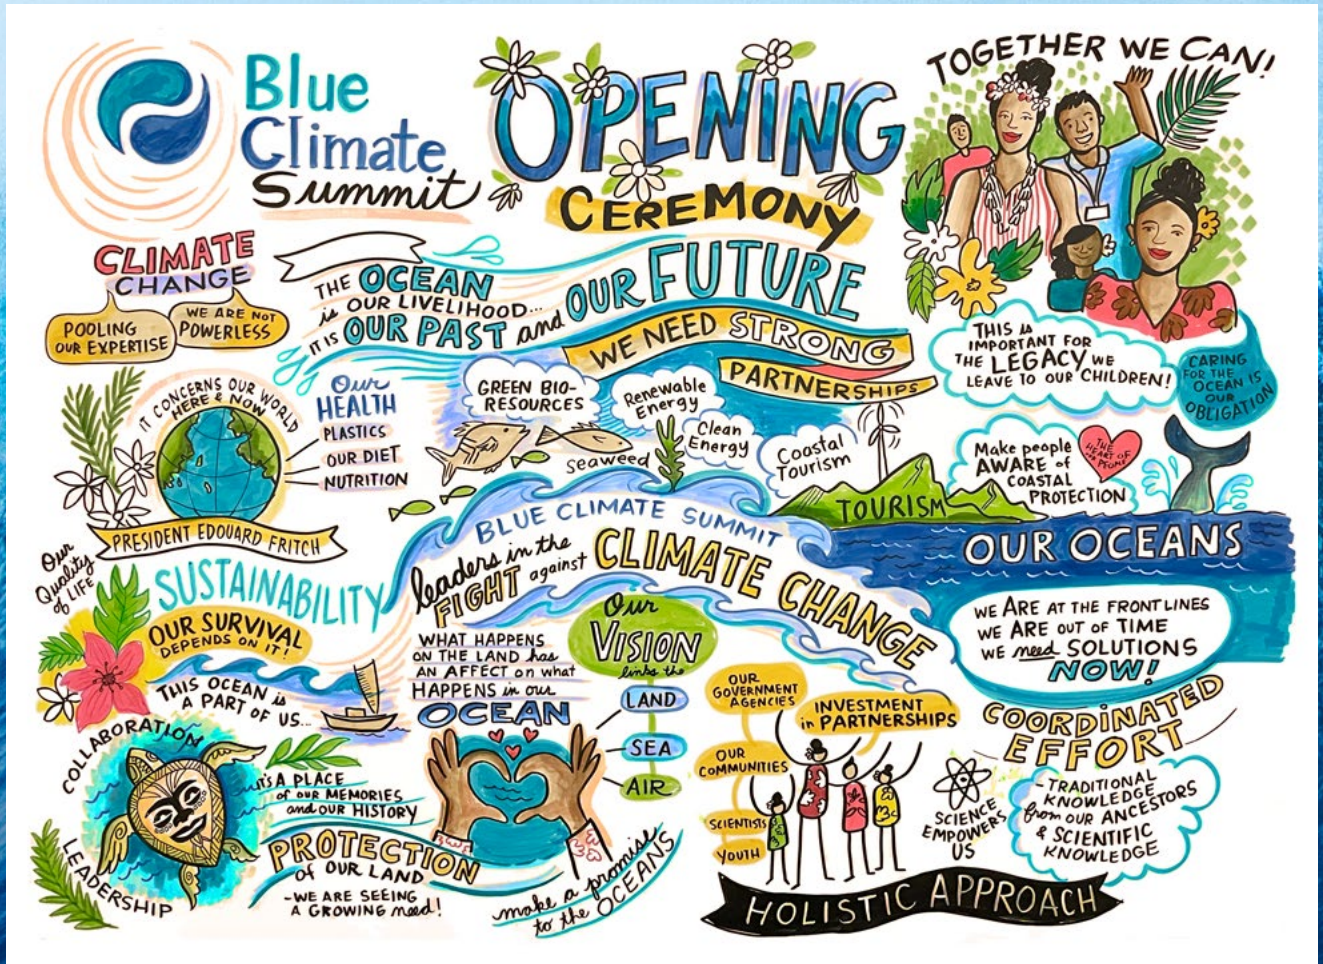 Blue
Climate
Summit
OPENING
CEREMONY
TOGETHER WE CAN!
CLIMATE
CHANGE
POOLING
OUR EXPERTISE
WE ARE NOT
POWERLESS
THE OCEAN
is OUR LIVELIHOOD...
IT IS OUR PAST and OUR FUTURE
WE NEED STRONG
PARTNERSHIPS
THIS is
IMPORTANT FOR
THE LEGACY WE
LEAVE TO OUR CHILDREN!
CARING
FOR THE
OCEAN IS
OUR
OBLIGATION
IT CONCERNS OUR WORLD
HERE & NOW
PRESIDENT EDOUARD FRITCH
Our
HEALTH
PLASTICS
OUR DIET
NUTRITION
GREEN BIO-
RESOURCES
Renewable
Energy
Clean
Energy
seaweed
Coastal
Tourism
TOURISM
Make people
AWARE of
COASTAL
PROTECTION
THE
HEART OF
THE
PEOPLE
OUR OCEANS
WE ARE AT THE FRONT LINES
WE ARE OUT OF TIME
WE need SOLUTIONS
NOW!
Our
Quality
of LIFE
SUSTAINABILITY
OUR SURVIVAL
DEPENDS ON IT!
THIS OCEAN is
A PART OF US...
BLUE CLIMATE SUMMIT
leaders in the
FIGHT against
CLIMATE CHANGE
WHAT HAPPENS
ON THE LAND has
AN AFFECT on what
HAPPENS in our
OCEAN
Our
VISION
links the
LAND
SEA
AIR
OUR
GOVERNMENT
AGENCIES
INVESTMENT
in PARTNERSHIPS
OUR
COMMUNITIES
SCIENTISTS
YOUTH
COORDINATED
EFFORT
SCIENCE
EMPOWERS
US
-TRADITIONAL
KNOWLEDGE
from OUR ANCESTORS
& SCIENTIFIC
KNOWLEDGE
HOLISTIC APPROACH
COLLABORATION
LEADERSHIP
IT'S A PLACE
of OUR MEMORIES
and OUR HISTORY
PROTECTION
of OUR LAND
-WE ARE SEEING
A GROWING need!
make a promise
to the OCEANS